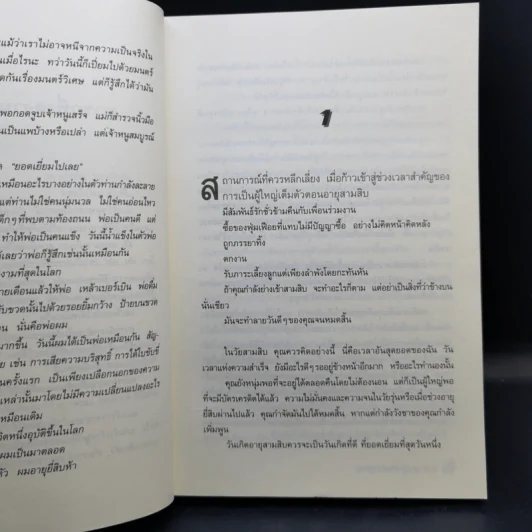 แม้ว่าเราไม่อาจหนีจากความเป็นจริงใน
นเมื่อไรนะ ทว่าวันนี้ก็เปี่ยมไปด้วยมนตร์
ดกันเรื่องมนตร์วิเศษ แต่ก็รู้สึกได้ว่ามัน
พอกอดจูบเจ้าหนูเสร็จ แม่ก็สำรวจนิ้วมือ
นเป็นแพบ้างหรือเปล่า แต่เจ้าหนูสมบูรณ์
ด "ยอดเยี่ยมไปเลย"
เหมือนอะไรบางอย่างในตัวท่านกำลังละลาย
แต่ท่านไม่ใช่คนนุ่มนวล ไม่ใช่คนอ่อนไหว
ด็กๆ ที่พบตามท้องถนน พ่อเป็นคนดี แต่
ทำให้พ่อเป็นคนแข็ง วันนี้น้ำแข็งในตัวพ่อ
ด้เลยว่าพ่อก็รู้สึกเช่นนั้นเหมือนกัน
งามที่สุดในโลก
ายเดือนแล้วให้พ่อ เหล้าเบอร์เบิน พ่อดื่ม
ับขวดนั้นไปด้วยรอยยิ้มกว้าง ป้ายบนขวด
าน นั่นคือพ่อผม
มากขึ้น วันนี้ผมได้เป็นพ่อเหมือนกัน สัญ-
ย เช่น การเสียความบริสุทธิ์ การได้ใบขับขี่
นครั้งแรก เป็นเพียงเปลือกนอกของความ
เหล่านั้นมาโดยไม่มีความเปลี่ยนแปลงอะไร
เหมือนเดิม
วิตหนึ่งอุบัติขึ้นในโลก
ผมเป็นมาตลอด
ล้ว ผมอายุยี่สิบห้า
1
สถานการณ์ที่ควรหลีกเลี่ยง เมื่อก้าวเข้าสู่ช่วงเวลาสำคัญของ
การเป็นผู้ใหญ่เต็มตัวตอนอายุสามสิบ
มีสัมพันธ์รักชั่วข้ามคืนกับเพื่อนร่วมงาน
ซื้อของฟุ่มเฟือยที่แทบไม่มีปัญญาซื้อ อย่างไม่คิดหน้าคิดหลัง
ถูกภรรยาทิ้ง
ตกงาน
รับภาระเลี้ยงลูกแต่เพียงลำพังโดยกะทันหัน
ถ้าคุณกำลังย่างเข้าสามสิบ จะทำอะไรก็ตาม แต่อย่าเป็นสิ่งที่ว่าข้างบน
นั่นเชียว
มันจะทำลายวันดีๆ ของคุณจนหมดสิ้น
ในวัยสามสิบ คุณควรคิดอย่างนี้ นี่คือเวลาอันสุดยอดของฉัน วัน
เวลาแห่งความสำเร็จ ยังมีอะไรดีๆ รออยู่ข้างหน้าอีกมาก หรืออะไรทำนองนั้น
คุณยังหนุ่มพอที่จะอยู่ได้ตลอดคืนโดยไม่ต้องนอน แต่ก็เป็นผู้ใหญ่พอ
ที่จะมีบัตรเครดิตได้แล้ว ความไม่มั่นคงและความจนในวัยรุ่นหรือเมื่อช่วงอายุ
ยี่สิบผ่านไปแล้ว คุณกำจัดมันไปได้หมดสิ้น หากแต่กำลังวังชาของคุณกำลัง
เพิ่มพูน
วันเกิดอายุสามสิบควรจะเป็นวันเกิดที่ดี ที่ยอดเยี่ยมที่สุดวันหนึ่ง